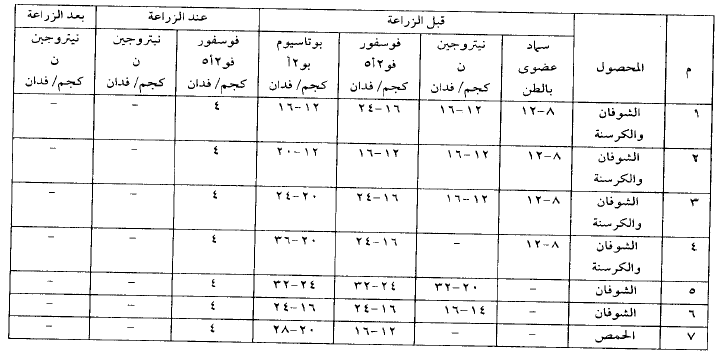 م | المحصول | قبل الزراعة | عند الزراعة | بعد الزراعة
سماد عضوى بالطن | نيتروجين ن كجم/ فدان | فوسفور فو٢أ٥ كجم/ فدان | بوتاسيوم بو٢أ كجم/ فدان | فوسفور فو٢أ٥ كجم/ فدان | نيتروجين ن كجم/ فدان | نيتروجين ن كجم/ فدان
١ | الشوفان والكرسنة | ٨–١٢ | ١٢–١٦ | ١٦–٢٤ | ١٢–١٦ | ٤ | – | –
٢ | الشوفان والكرسنة | ٨–١٢ | ١٢–١٦ | ١٢–١٦ | ١٢–٢٠ | ٤ | – | –
٣ | الشوفان والكرسنة | ٨–١٢ | ١٢–١٦ | ١٦–٢٤ | ٢٠–٢٤ | ٤ | – | –
٤ | الشوفان والكرسنة | ٨–١٢ | – | ١٦–٢٤ | ٢٠–٣٦ | ٤ | – | –
٥ | الشوفان | – | ٢٠–٣٢ | ٢٤–٣٢ | ٢٤–٣٢ | ٤ | – | –
٦ | الشوفان | – | ١٤–١٦ | ١٦–٢٤ | ١٦–٢٤ | ٤ | – | –
٧ | الحمص | – | – | ١٢–١٦ | ٢٠–٢٨ | ٤ | – | –